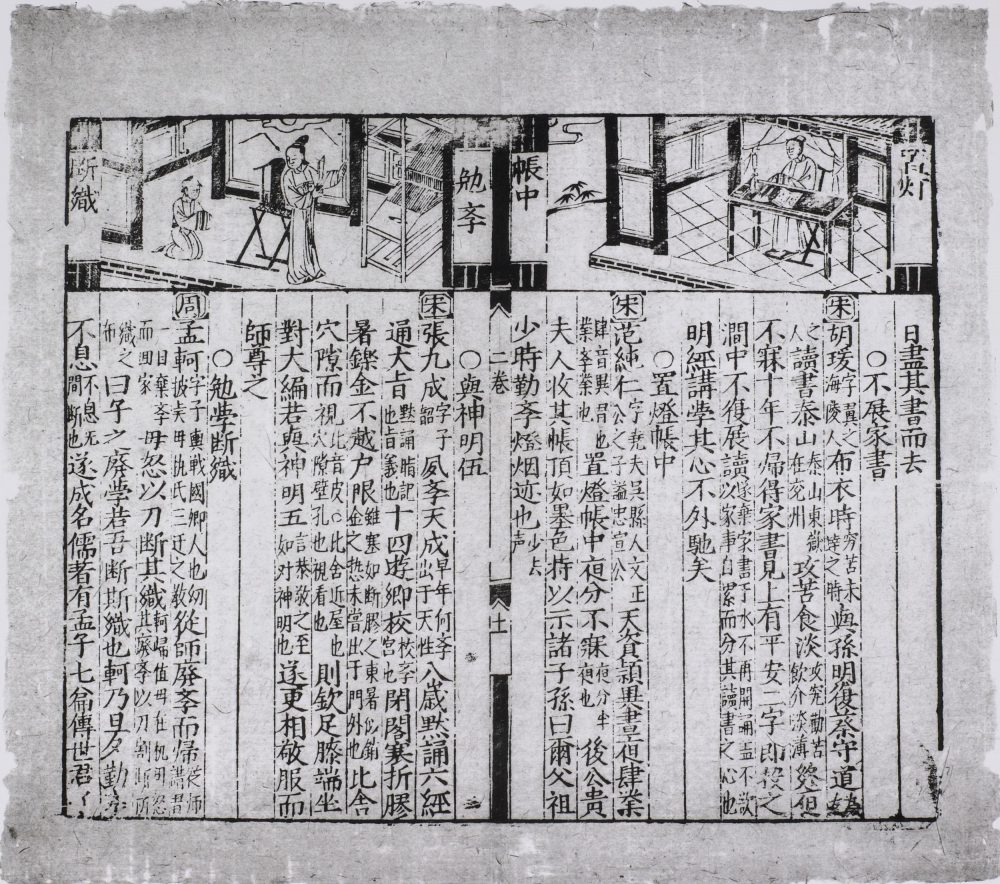 置灯
帳中
勉斈
断織
日盡其書而去
〇不展家書
宋胡瑗字翼之海陵人布衣時穷苦未達之時與孫明復蔡守道
讀書泰山泰山東嶽在兗州攻苦食淡終但
不寐十年不帰得家書見上有平安二字即投之
澗中不復展讀遂棄家書于水不再開誦盖不欲以家事自累而分其讀書之心也
明經講學其心不外馳矣
〇置燈帳中
宋范純仁字堯夫吴縣人文正公之子謚忠宣公天資頴異晝夜肆業
肆音異習也業斈業也置燈帳中夜分不寐夜分半夜也後公貴
夫人收其帳頂如墨色持以示諸子孫曰爾父祖
少時勤斈燈烟迹也少去声
二卷
十一
〇與神明伍
宋張九成字子韶夙斈天成早年何斈出于天性八歳默誦六經
通大旨默誦暗記也旨義也十四逰鄉校校斈宮也閉閣寒折膠
暑鑠金不越户限雖寒如断膠之東暑似銷金之热未嘗出于門外也比舍
穴隙而視比音皮〇比舍近屋也穴隙壁孔也視看也則歛足膝端坐
對大編若與神明五言恭敬之至如对神明也遂更相敬服而
師尊之
〇勉學断織
周孟軻字子輿戰國鄒人也幼被孟母仉氏三迁之教從師廢斈而帰從師讀書
一日棄斈而囬家母怒以刀断其織軻帰值母在机明怒其廢斈以刀割断所
織之布曰子之廢學若吾断斯織也軻乃旦夕勤斈
不息不息无間断也遂成名儒著有孟子七篇傳世君子